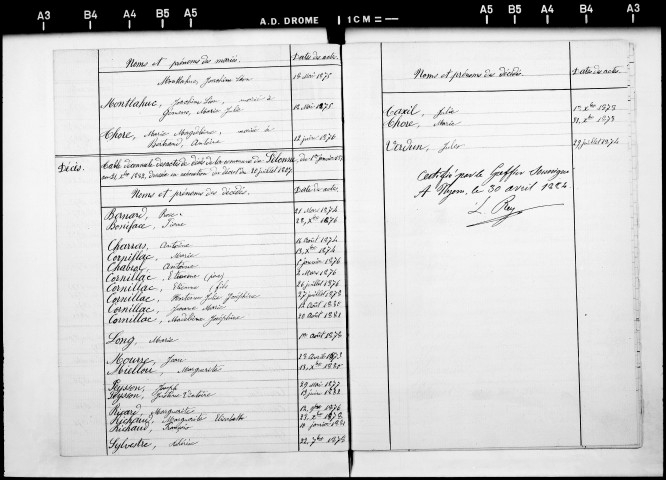 A3 B4 A4 B5 A5 A.D. DROME 1CM A5 B5 A4 B4 A3
Noms et prénoms des mariés. Date des actes.
Montlahuc, Joachim Léon 18 Mai 1875
Montlahuc, Joachim Léon, marié à
Marie Julie 18 Mai 1875
Chore, Marie Magdeleine, mariée à
Antoine 12 juin 1876
Décès. Table décennale des actes de décès de la commune de Pelonne, du 1er janvier 1873
au 31 Xbre 1882, dressée en exécution du décret du 20 juillet 1807.
Noms et prénoms des décédés. Date des actes.
Bernard, Rose 21 Mars 1874
Boniface, Pierre 28, Xbre 1876
Charras, Antoine 16 Août 1874
Cornillac, Marie 13, Xbre 1874
Chabrol, Antoine 5 janvier 1876
Cornillac, Etienne (père) 2 Mars 1876
Cornillac, Etienne fils 26 juillet 1876
Cornillac, Julie Joséphine 27 juillet 1878
Cornillac, Marie 12 Août 1880
Cornillac, Madeleine Joséphine 20 Août 1881
Long, Marie 1er Août 1878
Mourre, Jean 28 Avril 1873
Miellou, Marguerite 13, Xbre 1880
Peysson, Joseph 29 Mai 1877
Peysson, Gustave 13 juin 1882
Ricard, Marguerite 12, 9bre 1876
Richaud, Marguerite Elisabeth 23, Xbre 1878
Richaud, François 11 janvier 1881
Sylvestre, 22, 7bre 1878
Noms et prénoms des décédés. Date des actes.
Taxil, Julie 1er Xbre 1873
Chore, Marie 31, Xbre 1873
Verdun, Jules 29 juillet 1874
Certifié par le Greffier soussigné
A Nyons, le 30 avril 1884
L. Rey